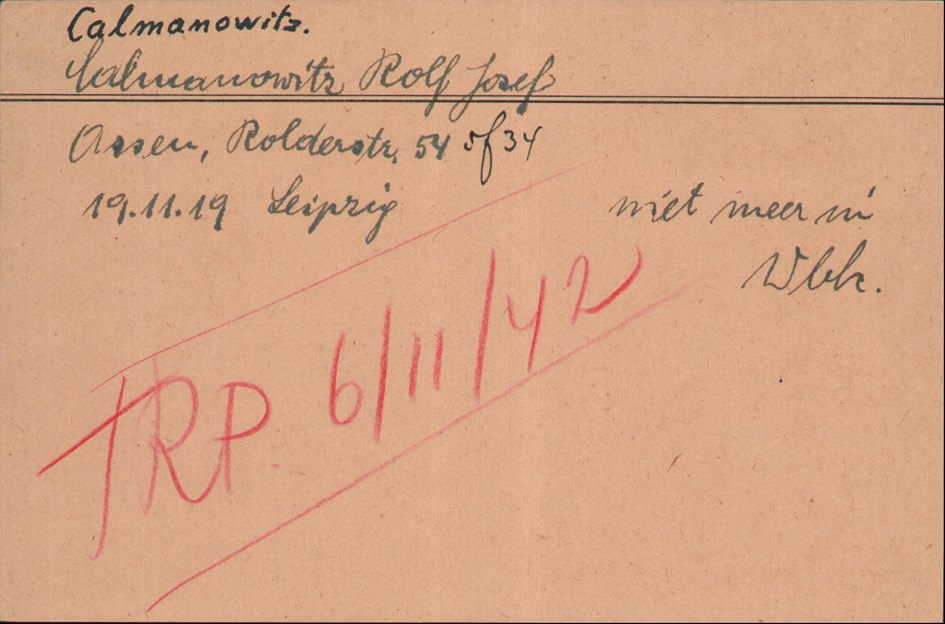 Calmanowitz.
Calmanowitz Rolf Josef
Assen, Rolderstr. 54 of 34
19.11.19 Leipzig
niet meer in
Wbk.
TRP 6/11/42